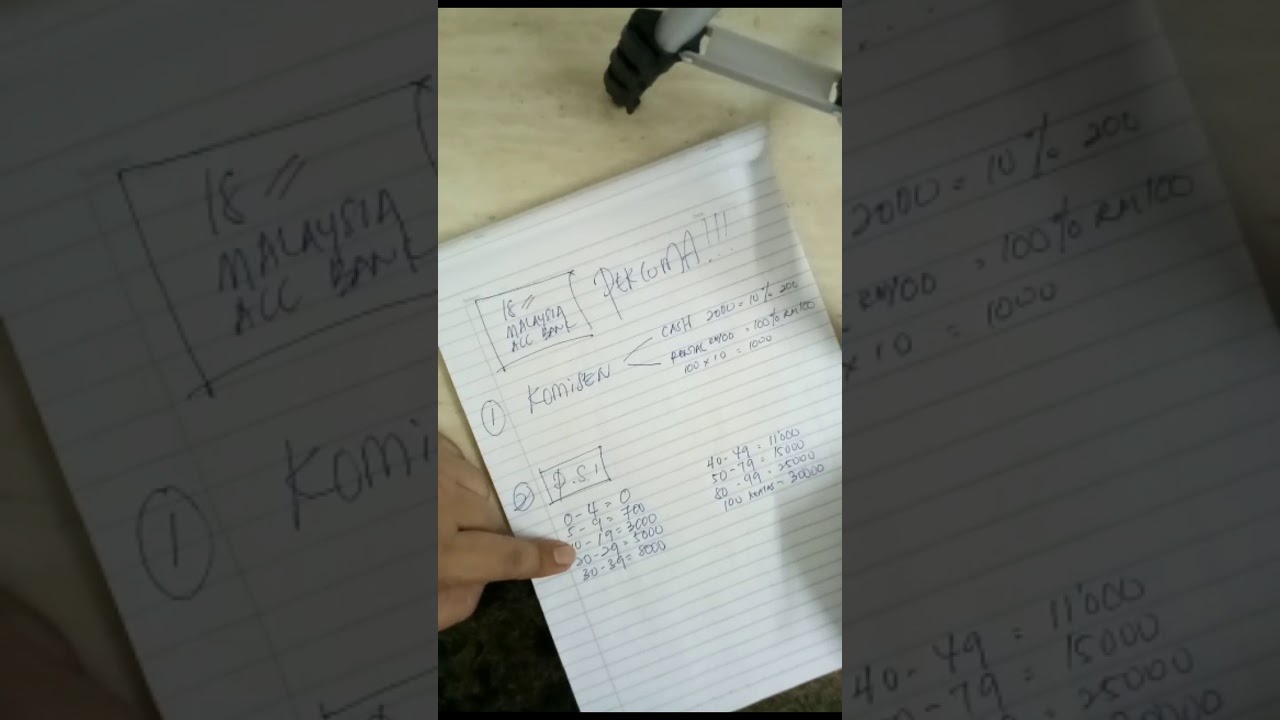 18 "
MALAYSIA
ACC BANK
PERCUMA!!!
① KOMISEN
CASH 2000 = 10% 200
RENTAL RM100 = 100% RM100
100 x 10 = 1000
② P.S.I
0-4 = 0
5-9 = 700
10-19 = 3000
20-29 = 5000
30-39 = 8000
40-49 = 11'000
50-79 = 15000
80-99 = 25000
100 KEATAS = 30000